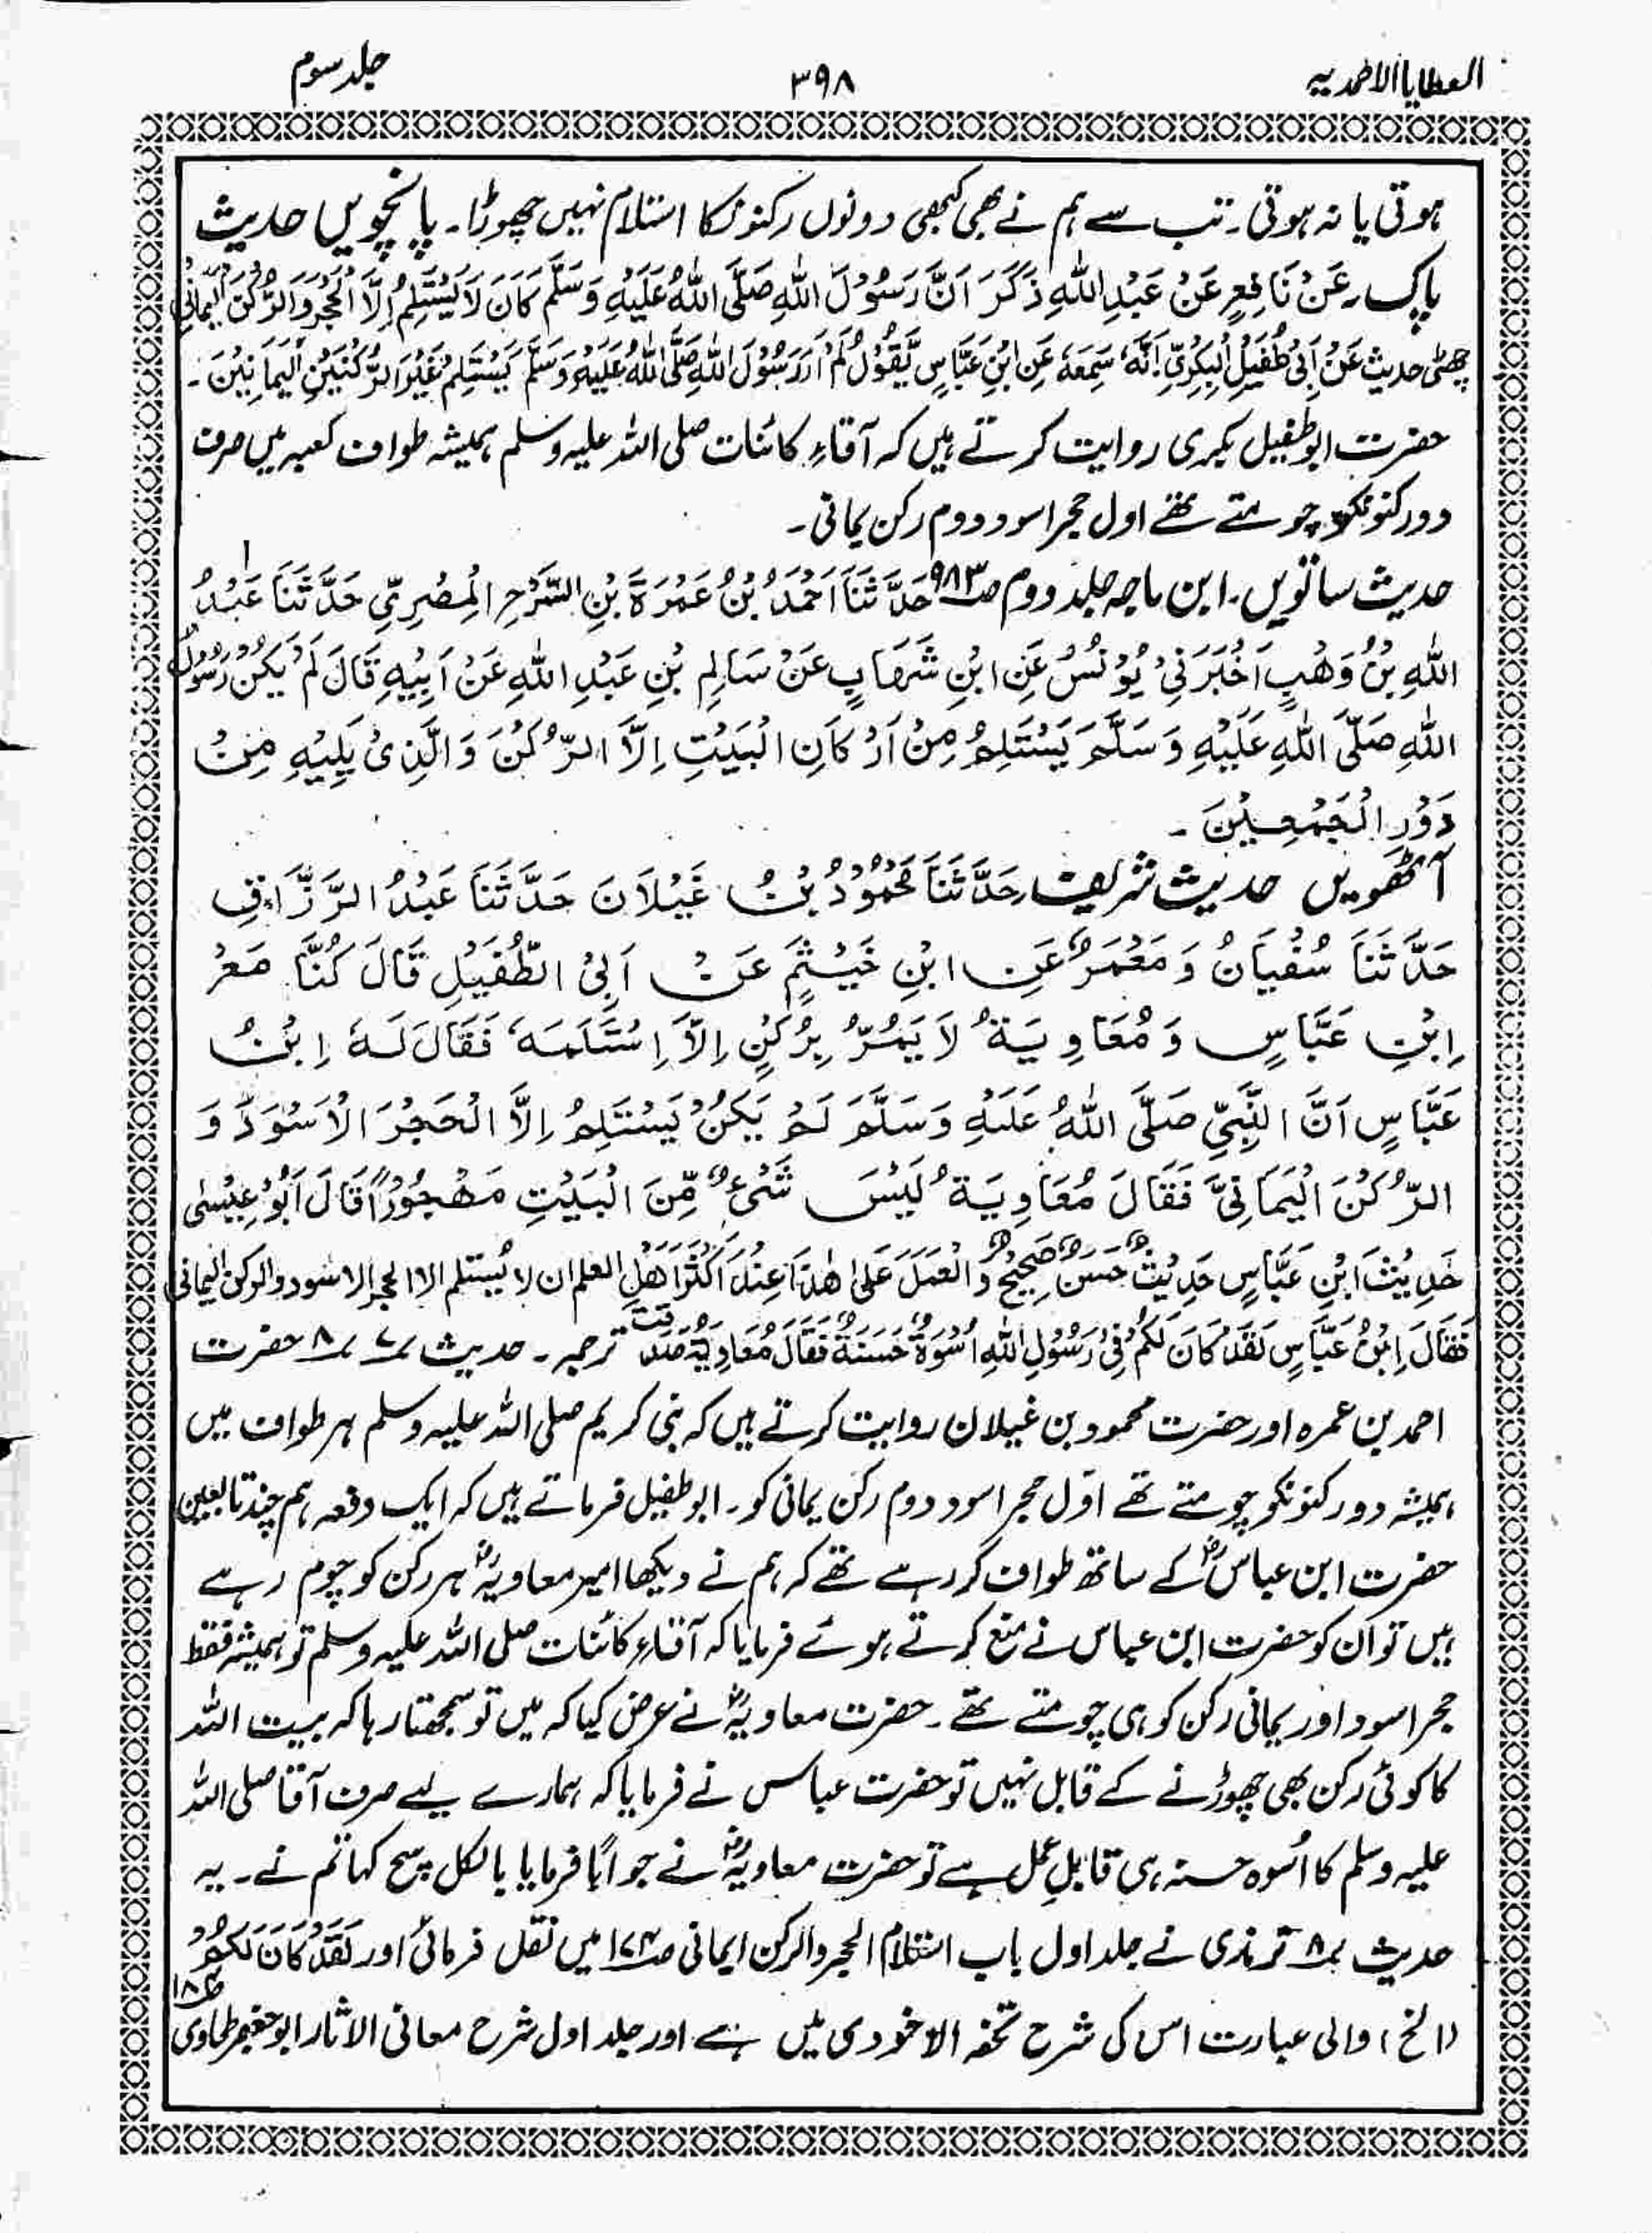 العطایا الاحمدیہ
۳۹۸
جلد سوم
ہوتی یا نہ ہوتی۔ تب سے ہم نے بھی کبھی دونوں رکنوں کا استلام نہیں چھوڑا۔ پانچویں حدیث
پاک۔ عَنْ نَافِعٍ عَنْ عَبْدِ اللهِ ذَكَرَ اَنَّ رَسُوْلَ اللهِ صَلَّى اللهُ عَلَيْهِ وَسَلَّمَ كَانَ لَا يَسْتَلِمُ اِلَّا الْحَجَرَ وَالرُّكْنَ الْيَمَانِيَ
چھٹی حدیث عَنْ اَبِىْ طُفَيْلِ الْبِكْرِيِّ اِنَّهٗ سَمِعَهٗ عَنِ ابْنِ عَبَّاسٍ يَقُوْلُ لَمْ اَرَ رَسُوْلَ اللهِ صَلَّى اللهُ عَلَيْهِ وَسَلَّمَ يَسْتَلِمُ غَيْرَ الرُّكْنَيْنِ الْيَمَانِيَيْنَ۔
حضرت ابو طفیل بکری روایت کرتے ہیں کہ آقاءِ کائنات صلی اللہ علیہ وسلم ہمیشہ طواف کعبہ میں صرف
دو رکنونکو چومتے تھے اول حجر اسود دوم رکن یمانی۔
حدیث ساتویں۔ ابن ماجہ جلد دوم صـ۹۸۳ حَدَّثَنَا اَحْمَدُ بْنُ عَمْرَةَ بْنِ السَّرْحِ الْمِصْرِيِّ حَدَّثَنَا عَبْدُ
اللهِ بْنُ وَهْبٍ اَخْبَرَنِىْ يُوْنُسُ عَنِ ابْنِ شَهَابٍ عَنْ سَالِمِ بْنِ عَبْدِ اللهِ عَنْ اَبِيْهِ قَالَ لَمْ يَكُنْ رَسُوْلُ
اللهِ صَلَّى اللهِ عَلَيْهِ وَسَلَّمَ يَسْتَلِمُ مِنْ اَرْكَانِ الْبَيْتِ اِلَّا الرُّكْنَ وَالَّذِىْ يَلِيْهِ مِنْ
دَوْرِ الْجَمْحِيْنَ۔
آٹھویں حدیث شریف۔ حَدَّثَنَا مَحْمُوْدُ بْنُ غَيْلَانَ حَدَّثَنَا عَبْدُ الرَّزَّاقِ
حَدَّثَنَا سُفْيَانُ وَ مَعْمَرٌ عَنِ ابْنِ خَيْثَمٍ عَنْ اَبِىْ الطُّفَيْلِ قَالَ كُنَّا مَعَ
اِبْنِ عَبَّاسٍ وَ مُعَاوِيَةُ لَا يَمُرُّ بِرُكْنٍ اِلَّا اِسْتَلَمَهٗ فَقَالَ لَهٗ اِبْنُ
عَبَّاسٍ اَنَّ النَّبِيَّ صَلَّى اللهُ عَلَيْهِ وَسَلَّمَ لَمْ يَكُنْ يَسْتَلِمُ اِلَّا الْحَجْرَ الْاَسْوَدَ وَ
الرُّكْنَ الْيَمَانِيَّ فَقَالَ مُعَاوِيَةُ لَيْسَ شَىْءٌ مِّنَ الْبَيْتِ مَهْجُوْرًا قَالَ اَبُوْ عِيْسٰى
حَدِيْثَ ابْنِ عَبَّاسٍ حَدِيْثٌ حَسَنٌ صَحِيْحٌ وَالْعَمَلَ عَلٰى هٰذَا عِنْدَ اَكْثَرَ اَهْلِ العلم ان لا يُستلم الا الحجر الاسود والركن اليمانى
فَقَالَ اِبْنُ عَبَّاسٍ لَقَدْ كَانَ لَكُمْ فِىْ رَسُوْلِ اللهِ اُسْوَةٌ حَسَنَةٌ فَقَالَ مُعَاوِيَةُ صَدَقْتَ ترجمہ۔ حدیث ۷؍ ۸؍ حضرت
احمد بن عمرہ اور حضرت محمود بن غیلان روایت کرتے ہیں کہ نبی کریم صلی اللہ علیہ وسلم ہر طواف میں
ہمیشہ دو رکنونکو چومتے تھے اوّل حجر اسود دوم رکن یمانی کو۔ ابو طفیل فرماتے ہیں کہ ایک دفعہ ہم چند تابعین
حضرت ابن عباسؓ کے ساتھ طواف کر رہے تھے کہ ہم نے دیکھا امیر معاویہؓ ہر رکن کو چوم رہے
ہیں تو ان کو حضرت ابن عباس نے منع کرتے ہوئے فرمایا کہ آقاءِ کائنات صلی اللہ علیہ وسلم تو ہمیشہ فقط
حجر اسود اور یمانی رکن کو ہی چومتے تھے۔ حضرت معاویہؓ نے عرض کیا کہ میں تو سمجھتا رہا کہ بیت اللہ
کا کوئی رکن بھی چھوڑنے کے قابل نہیں تو حضرت عباس نے فرمایا کہ ہمارے لیے صرف آقا صلی اللہ
علیہ وسلم کا اُسوہ حسنہ ہی قابلِ عمل ہے تو حضرت معاویہؓ نے جواباً فرمایا بالکل سچ کہا تم نے۔ یہ
حدیث ۸؍ ترمذی نے جلد اول باب استلام الحجر والرکن ایمانی صـ۱۷۴ میں نقل فرمائی اور لَقَدْ كَانَ لَكُمْ
(الخ) والی عبارت اس کی شرح تحفہ الاخودی میں ہے اور جلد اول شرح معانی الاثار ابو جعفر طحاوی صـ۱۸۴